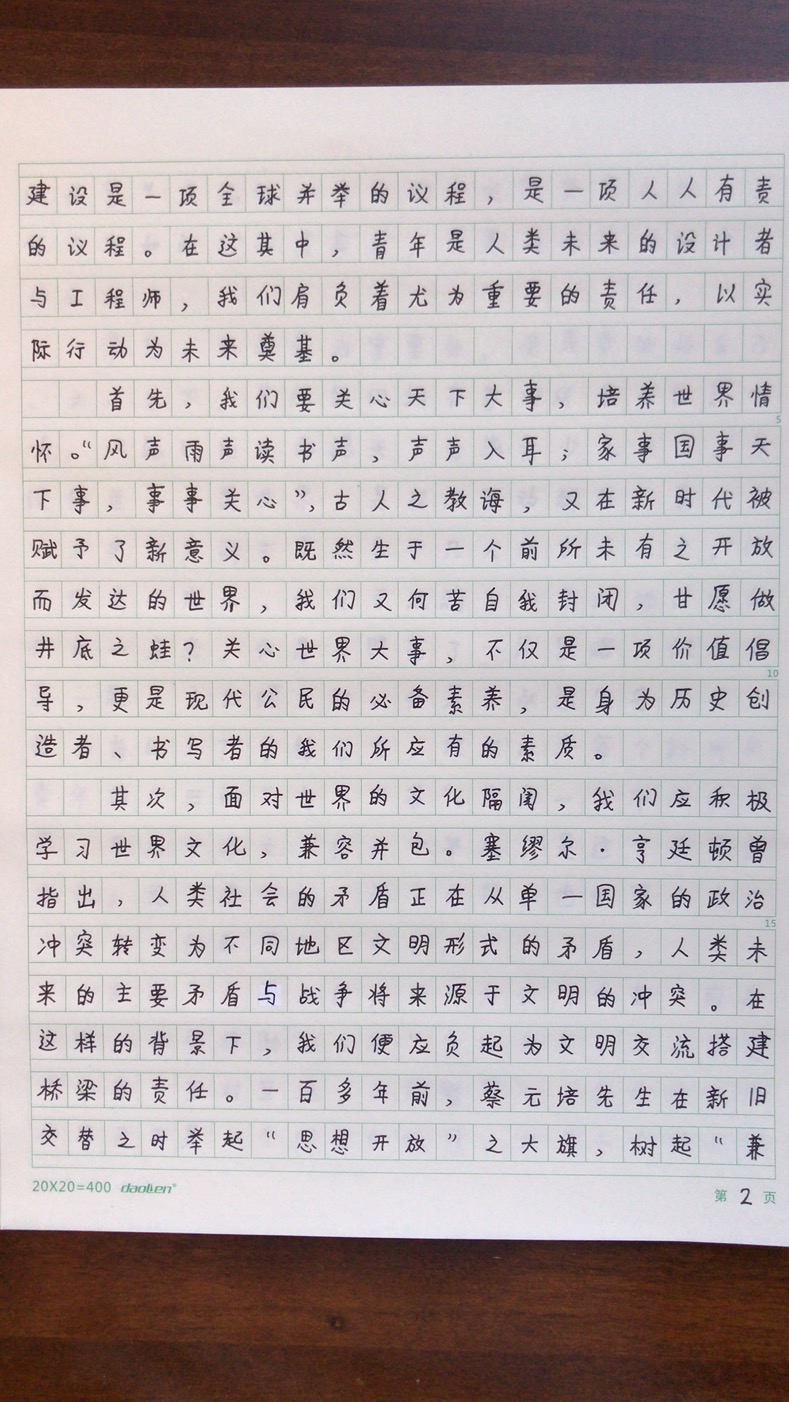 建设是一项全球并举的议程，是一项人人有责
的议程。在这其中，青年是人类未来的设计者
与工程师，我们肩负着尤为重要的责任，以实
际行动为未来奠基。
首先，我们要关心天下大事，培养世界情
5
怀。“风声雨声读书声，声声入耳；家事国事天
下事，事事关心”，古人之教诲，又在新时代被
赋予了新意义。既然生于一个前所未有之开放
而发达的世界，我们又何苦自我封闭，甘愿做
井底之蛙？关心世界大事，不仅是一项价值倡
10
导，更是现代公民的必备素养，是身为历史创
造者、书写者的我们所应有的素质。
其次，面对世界的文化隔阂，我们应积极
学习世界文化，兼容并包。塞缪尔·亨廷顿曾
指出，人类社会的矛盾正在从单一国家的政治
15
冲突转变为不同地区文明形式的矛盾，人类未
来的主要矛盾与战争将来源于文明的冲突。在
这样的背景下，我们便应负起为文明交流搭建
桥梁的责任。一百多年前，蔡元培先生在新旧
交替之时举起“思想开放”之大旗，树起“兼
20X20=400 daolen®
第 2 页